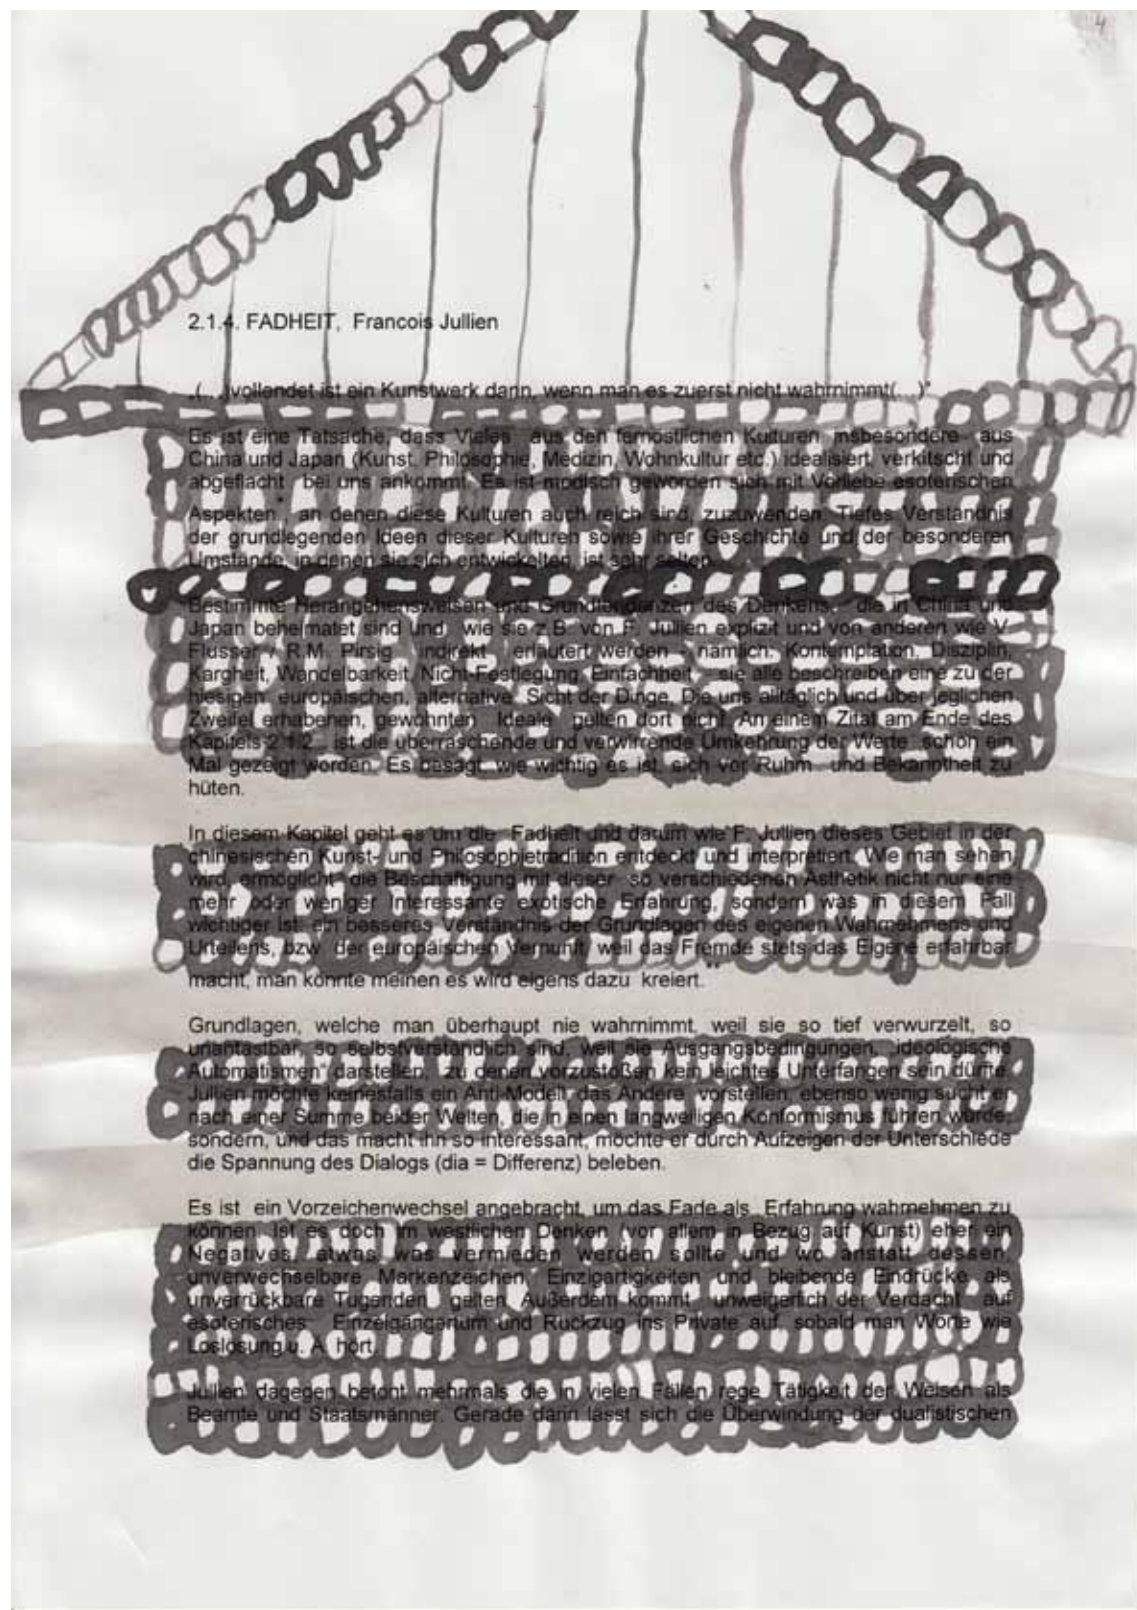 4
2.1.4. FADHEIT, Francois Jullien
„(...)vollendet ist ein Kunstwerk dann, wenn man es zuerst nicht wahrnimmt(...)"
Es ist eine Tatsache, dass Vieles aus den fernöstlichen Kulturen insbesondere aus
China und Japan (Kunst, Philosophie, Medizin, Wohnkultur etc.) idealisiert, verkitscht und
abgeflacht bei uns ankommt. Es ist modisch geworden sich mit Vorliebe esoterischen
Aspekten*, an denen diese Kulturen auch reich sind, zuzuwenden. Tiefes Verständnis
der grundlegenden Ideen dieser Kulturen sowie ihrer Geschichte und der besonderen
Umstände, in denen sie sich entwickelten, ist sehr selten.
Bestimmte Herangehensweisen und Grundtendenzen des Denkens, die in China und
Japan beheimatet sind und wie sie z.B. von F. Jullien explizit und von anderen wie V.
Flusser / R.M. Pirsig indirekt erläutert werden - nämlich: Kontemplation, Disziplin,
Kargheit, Wandelbarkeit, Nicht-Festlegung, Einfachheit - sie alle beschreiben eine zu der
hiesigen europäischen, alternative Sicht der Dinge. Die uns alltäglich und über jeglichen
Zweifel erhabenen, gewohnten Ideale gelten dort nicht. An einem Zitat am Ende des
Kapitels 2.1.2. ist die überraschende und verwirrende Umkehrung der Werte schon ein
Mal gezeigt worden. Es besagt, wie wichtig es ist, sich vor Ruhm und Bekanntheit zu
hüten.
In diesem Kapitel geht es um die Fadheit und darum wie F. Jullien dieses Gebiet in der
chinesischen Kunst- und Philosophietradition entdeckt und interpretiert. Wie man sehen
wird, ermöglicht die Beschäftigung mit dieser so verschiedenen Ästhetik nicht nur eine
mehr oder weniger interessante exotische Erfahrung, sondern was in diesem Fall
wichtiger ist: ein besseres Verständnis der Grundlagen des eigenen Wahrnehmens und
Urteilens, bzw. der europäischen Vernunft, weil das Fremde stets das Eigene erfahrbar
macht, man könnte meinen es wird eigens dazu kreiert.**
Grundlagen, welche man überhaupt nie wahrnimmt, weil sie so tief verwurzelt, so
unantastbar, so selbstverständlich sind, weil sie Ausgangsbedingungen, „ideologische
Automatismen" darstellen, zu denen vorzustoßen kein leichtes Unterfangen sein dürfte.
Jullien möchte keinesfalls ein Anti-Modell, das Andere vorstellen, ebenso wenig sucht er
nach einer Summe beider Welten, die in einen langweiligen Konformismus führen würde,
sondern, und das macht ihn so interessant, möchte er durch Aufzeigen der Unterschiede
die Spannung des Dialogs (dia = Differenz) beleben.
Es ist ein Vorzeichenwechsel angebracht, um das Fade als Erfahrung wahrnehmen zu
können. Ist es doch im westlichen Denken (vor allem in Bezug auf Kunst) eher ein
Negatives, etwas was vermieden werden sollte und wo anstatt dessen,
unverwechselbare Markenzeichen, Einzigartigkeiten und bleibende Eindrücke als
unverrückbare Tugenden gelten. Außerdem kommt unweigerlich der Verdacht auf
esoterisches Einzelgängertum und Rückzug ins Private auf, sobald man Worte wie
Loslösung u. A. hört.
Jullien dagegen betont mehrmals die in vielen Fällen rege Tätigkeit der Weisen als
Beamte und Staatsmänner. Gerade darin lässt sich die Überwindung der dualistischen